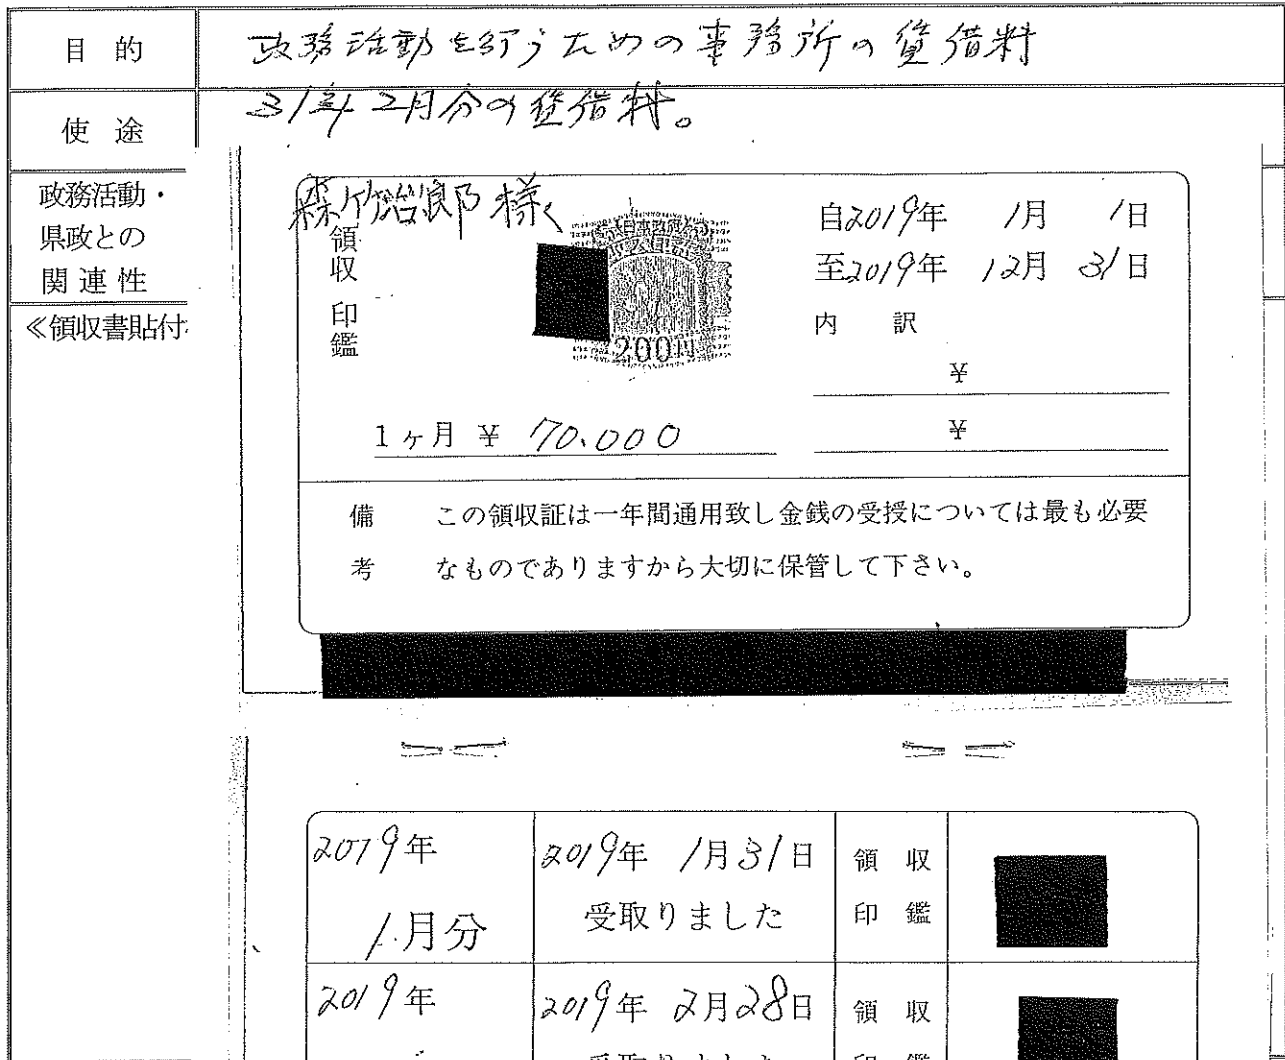 目的
政務活動を行うための事務所の賃借料
使途
31年2月分の賃借料。
政務活動・
県政との
関連性
≪領収書貼付
森竹治郎様
領収印鑑
200円
自2019年 1月 1日
至2019年 12月 31日
内訳
¥
¥
1ヶ月 ¥ 70.000
備考
この領収証は一年間通用致し金銭の受授については最も必要
なものでありますから大切に保管して下さい。
2019年
1月分
2019年 1月31日
受取りました
領収
印鑑
2019年
2019年 2月28日
受取りました
領収
印鑑